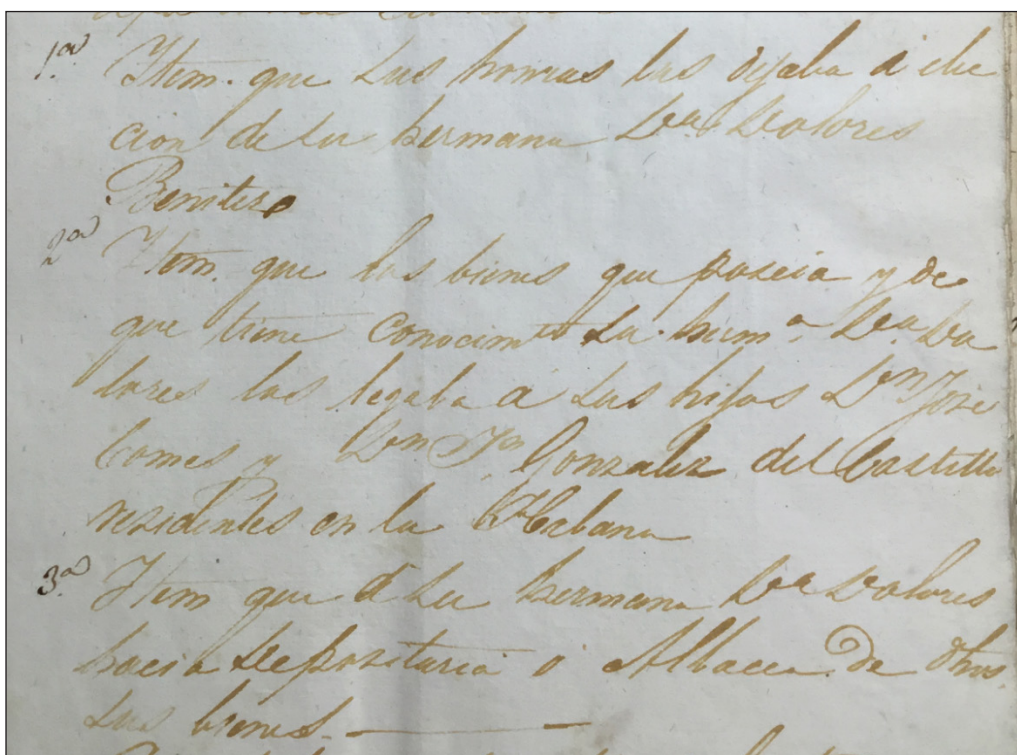 1.ª Item. que sus honras las dejaba á elec
cion de su hermana D.ª Dolores
Benitez
2.ª Itom. que los bienes que poseia y de
que tiene conocim.to su herm.ª D.ª Do
lores los legaba a sus hijos D.n Jose
Comes y D.n J.n Gonzalez del Castillo
residentes en la Habana
3.ª Item que á su hermana D.ª Dolores
hacia depositaria o Albacea de dhos.
sus bienes.